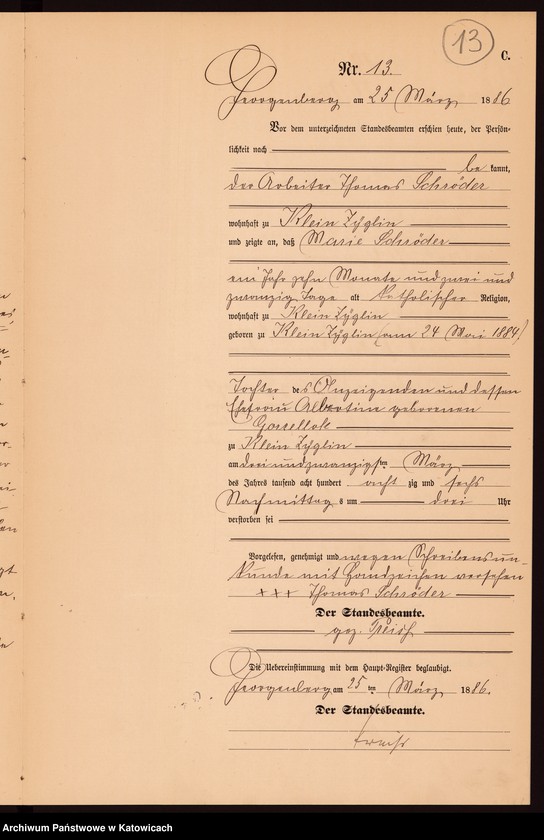 13
C.
Nr. 13.
Georgenberg am 25 März 1886
Vor dem unterzeichneten Standesbeamten erschien heute, der Persön-
lichkeit nach
be kannt,
der Arbeiter Thomas Schröder
wohnhaft zu Klein Zyglin
und zeigte an, daß Marie Schröder
ein Jahr zehn Monate und zwei und
zwanzig Tage alt katholischer Religion,
wohnhaft zu Klein Zyglin
geboren zu Klein Zyglin (am 24 Mai 1884)
Tochter des Anzeigenden und dessen
Ehefrau Albertine geborenen
zu Klein Zyglin
am drei und zwanzigsten März
des Jahrs tausend acht hundert acht zig und sechs
Nachmittag s um drei Uhr
verstorben sei
Vorgelesen, genehmigt und wegen Schreibensun-
kunde mit Handzeichen versehen
+++ Thomas Schröder
Der Standesbeamte.
gez.
Die Uebereinstimmung mit dem Haupt-Register beglaubigt.
Georgenberg am 25 ten März 1886.
Der Standesbeamte.
Archiwum Państwowe w Katowicach